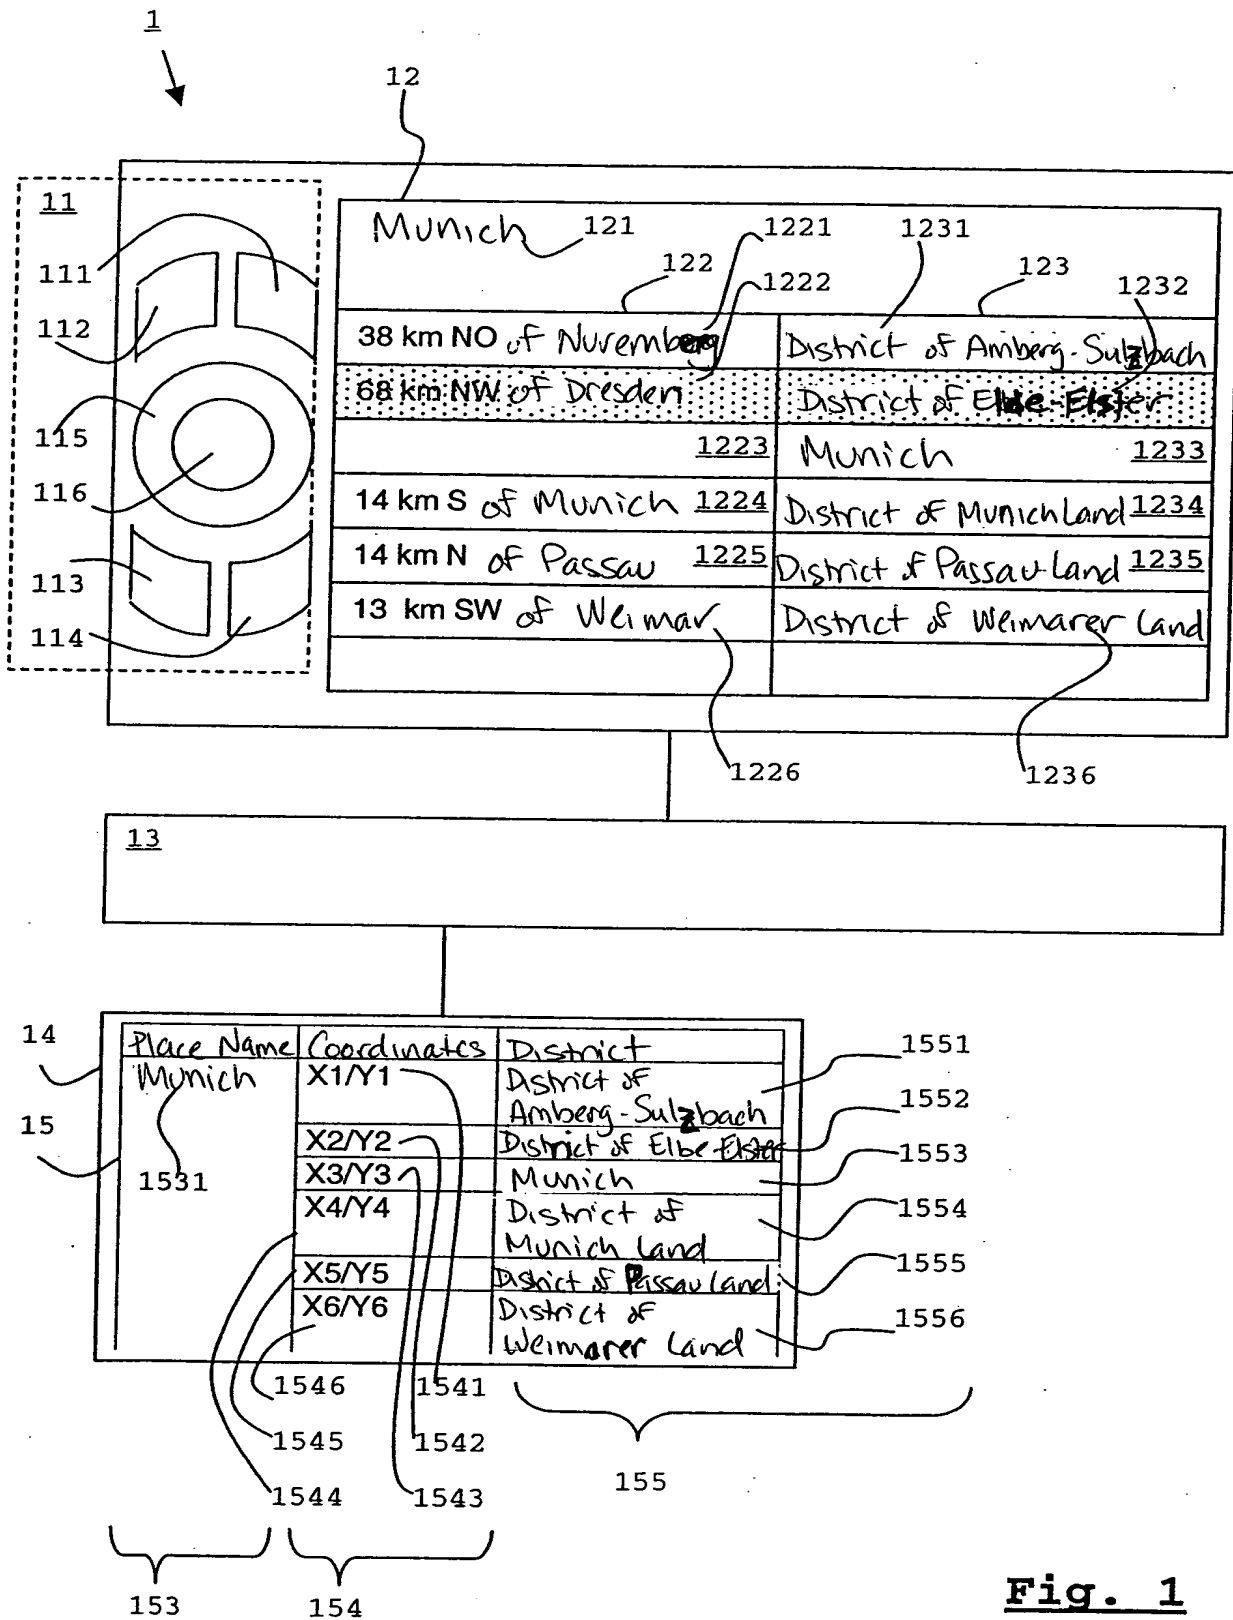 1
12
11
Munich 121 1221 1231
111 122 1222 123 1232
112
38 km NO of Nuremberg District of Amberg-Sulzbach
68 km NW of Dresden District of Elbe-Elster
115 1223 Munich 1233
116 14 km S of Munich 1224 District of Munich Land 1234
113 14 km N of Passau 1225 District of Passau-Land 1235
13 km SW of Weimar District of Weimarer Land
114
1226 1236
13
14 Place Name Coordinates District 1551
Munich X1/Y1 District of
Amberg-Sulzbach 1552
15 X2/Y2 District of Elbe-Elster
1531 X3/Y3 Munich 1553
X4/Y4 District of 1554
Munich Land
X5/Y5 District of Passau Land 1555
X6/Y6 District of 1556
Weimarer Land
1546 1541
1545 1542
1544 1543 155
153 154
Fig. 1